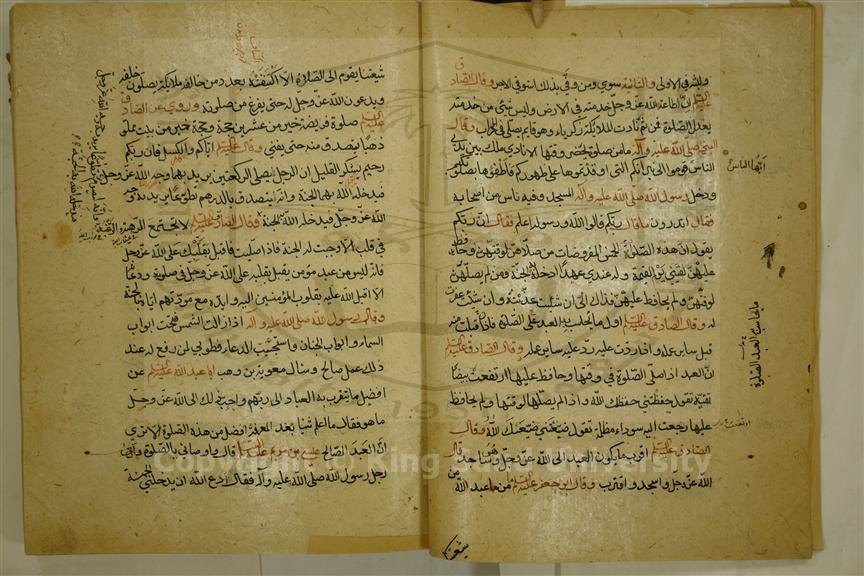 وللشر في الاولى والثانية سوى ومن وفى بذلك استوفى الاجر وقال الصادق
عليه السلام ان طاعة الله عز وجل خدمته في الارض وليس شيء من خدمته
يعدل الصلوة فمن ثم نادت الملائكة زكرياء وهو قايم يصلي في المحراب وقال
النبي صلى الله عليه وآله ما من صلوة يحضر وقتها الا نادى ملك بين يدي
الناس قوموا الى نيرانكم التي اوقدتموها على ظهوركم فاطفؤها بصلوتكم
ودخل رسول الله صلى الله عليه وآله المسجد وفيه ناس من اصحابه
فقال اتدرون ما قال ربكم قالوا الله ورسوله اعلم فقال ان ربكم
يقول ان هذه الصلوات الخمس المفروضات من صلاهن لوقتهن وحافظ
عليهن لقيني يوم القيمة وله عندي عهد ادخله الجنة ومن لم يصلهن
لوقتهن ولم يحافظ عليهن فذاك الي ان شئت عذبته وان شئت غفرت
له وقال الصادق عليه السلام اول ما يحاسب به العبد على الصلوة فاذا قبلت منه
قبل ساير عمله واذا ردت عليه رد عليه ساير عمله وقال الصادق عليه السلام
ان العبد اذا صلى الصلوة في وقتها وحافظ عليها ارتفعت بيضاء
نقية تقول حفظتني حفظك الله واذا لم يصلها لوقتها ولم يحافظ
عليها رجعت اليه سوداء مظلمة تقول ضيعتني ضيعك الله وقال
الصادق عليه السلام اقرب ما يكون العبد الى الله عز وجل وهو ساجد قال
الله عز وجل واسجد واقترب وقال ابو جعفر عليه السلام ما من عبد
ايها الناس
ما يحاسب به العبد الصلوة
شيعتنا
شيعتنا يقوم الى الصلاة الا اكتنفته بعدد من خالفه ملائكة يصلون خلفه
ويدعون الله عز وجل له حتى يفرغ من صلوته وروي عن الصادق
عليه السلام صلوة فريضة خير من عشرين حجة وحجة خير من بيت مملو
ذهبا يتصدق منه حتى يفنى وقال عليه السلام اياكم والكسل فان ربكم
رحيم يشكر القليل ان الرجل ليصلي الركعتين يريد بهما وجه الله عز وجل
فيدخله الله بهما الجنة وانه ليتصدق بالدرهم تطوعا يريد به وجه
الله عز وجل فيدخله الله به الجنة وقال الصادق عليه السلام لا تجتمع الرهبة والرغبة
في قلب الا وجبت له الجنة فاذا صليت فاقبل بقلبك على الله عز وجل
فانه ليس من عبد مؤمن يقبل بقلبه على الله عز وجل في صلوته ودعائه
الا اقبل الله عليه بقلوب المؤمنين اليه وايده مع مودتهم اياه بالجنة
وقال رسول الله صلى الله عليه وآله اذا زالت الشمس فتحت ابواب
السماء وابواب الجنان واستجيب الدعاء فطوبى لمن رفع له عند
ذلك عمل صالح وسال معوية بن وهب ابا عبد الله عليه السلام عن
افضل ما يتقرب به العباد الى ربهم واحب ذلك الى الله عز وجل
ما هو فقال ما اعلم شيئا بعد المعرفة افضل من هذه الصلوة الا ترى
ان العبد الصالح عيسى بن مريم عليه السلام قال واوصاني بالصلوة واتى
رجل رسول الله صلى الله عليه وآله فقال ادع الله ان يدخلني الجنة